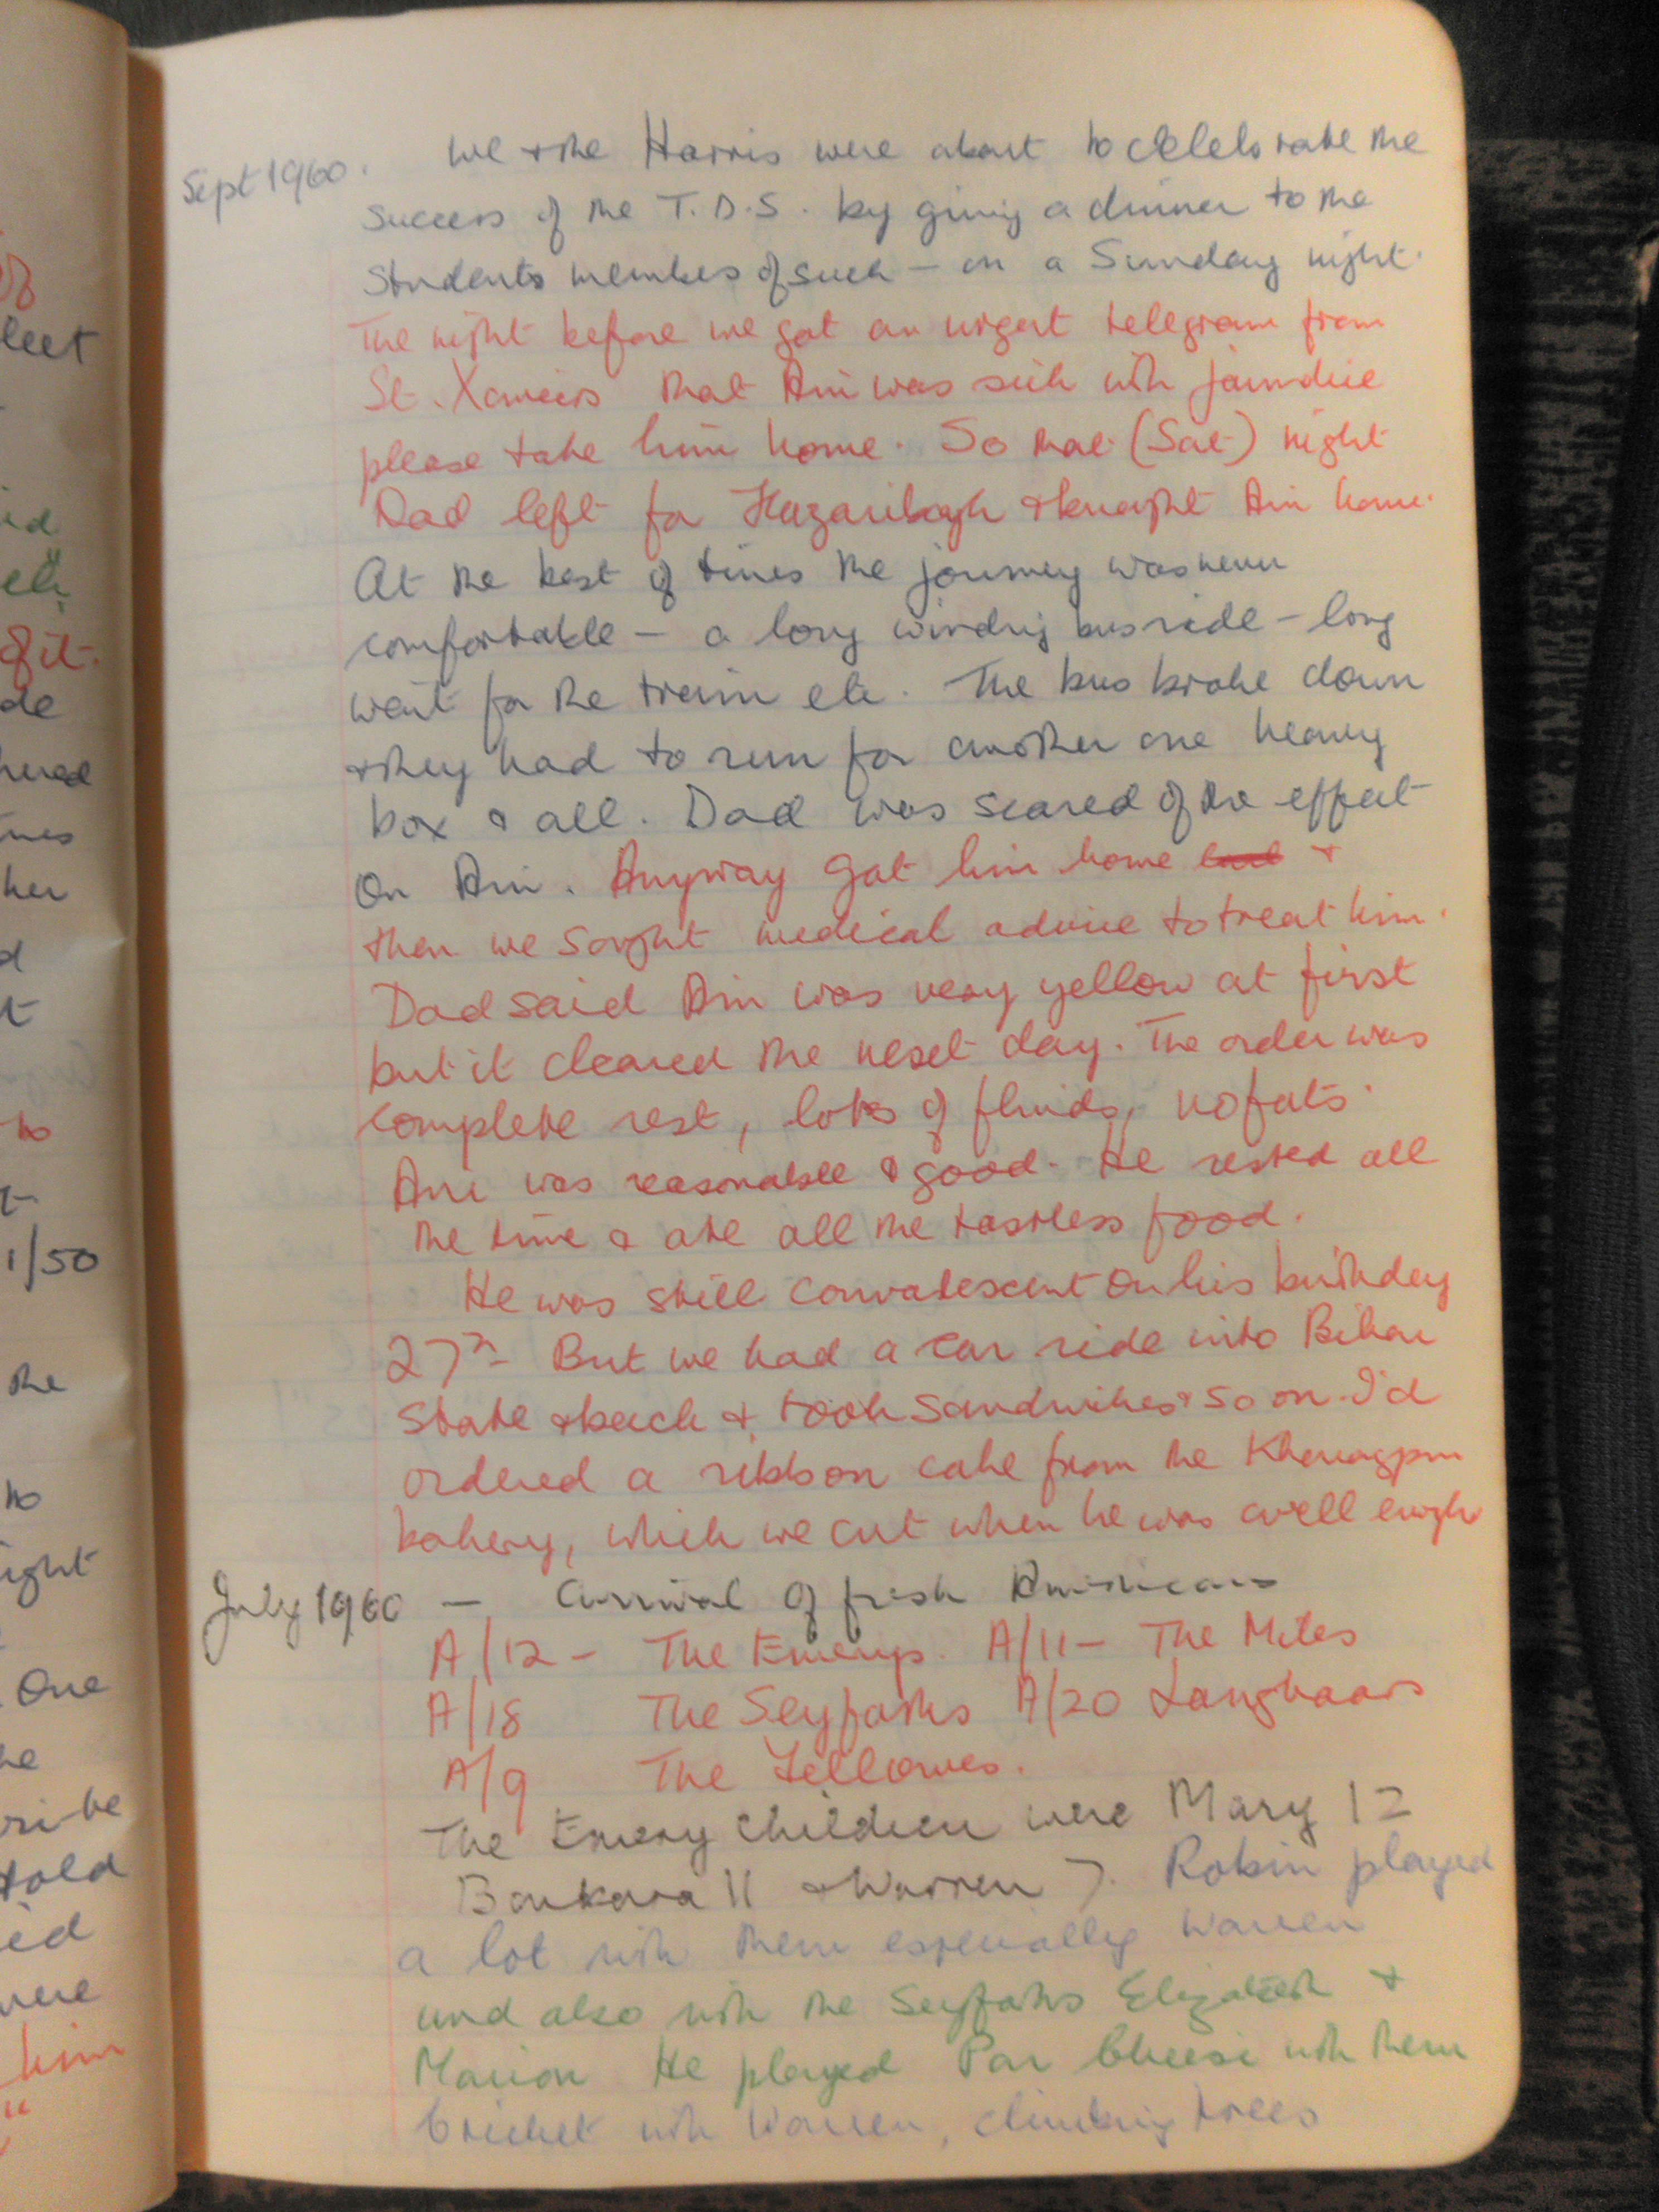 Sept 1960. We & the Harris were about to celebrate the
success of the T.D.S. by giving a dinner to the
students members of such — on a Sunday night.
The night before we got an urgent telegram from
St. Xaviers that Ani was sick with jaundice
please take him home. So that (Sat) night
Dad left for Hazaribagh & brought Ani home.
At the best of times the journey was never
comfortable — a long winding bus ride — long
wait for the train etc. The bus broke down
& they had to run for another one heavy
box & all. Dad was scared of the effect
on Ani. Anyway got him home &
then we sought medical advice to treat him.
Dad said Ani was very yellow at first
but it cleared the next day. The order was
complete rest, lots of fluids, no fats.
Ani was reasonable & good. He rested all
the time & ate all the tasteless food.
He was still convalescent on his birthday
27th But we had a car ride into Bihar
State & back & took sandwiches & so on. I'd
ordered a ribbon cake from the Kharagpur
bakery, which we cut when he was well enough
July 1960 — Arrival of fresh Americans
A/12 - The Emerys. A/11 - The Miles
A/18 The Seyfarths A/20 Langhaars
A/9 The Fellowes.
The Emery children were Mary 12
Barbara 11 & Warren 7. Robin played
a lot with them especially Warren
and also with the Seyfarths Elizabeth &
Marion He played Par Cheesi with them
Cricket with Warren, climbing trees
leet
of it.
de
her
1/50
the
to
One
told
were
him